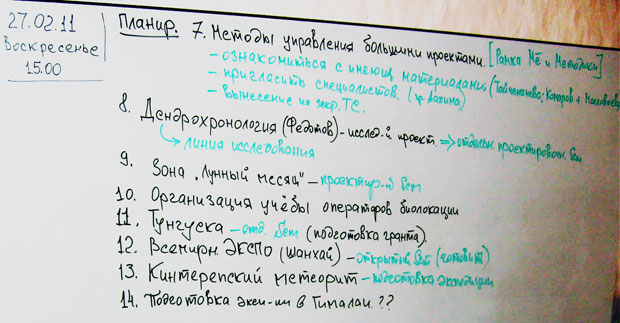 27.02.11
Воскресенье
15.00
Планир. 7. Методы управления большими проектами. [Рамка Мё и Методики]
– ознакомиться с имеющ материалами (Тайченачева; Комаров +
– пригласить специалистов. (гр. Лапина)
– вынесение на закр. ТС.
8. Дендрохронология (Федотов) – исслед-й проект. ⇒ отдельн. проектировочн. Sem
→ линия исследования
9. Зона „Лунный месяц" – проектир-й Sem
10. Организация учёбы операторов биолокации
11. Тунгуска – отд. Sem (подготовка гранта).
12. Всемирн. ЭКСПО (Шанхай) – открытый Sem (готовит)
13. Кинтерепский метеорит – подготовка экспедиции
14. Подготовка экси-ии в Гималаи. ??